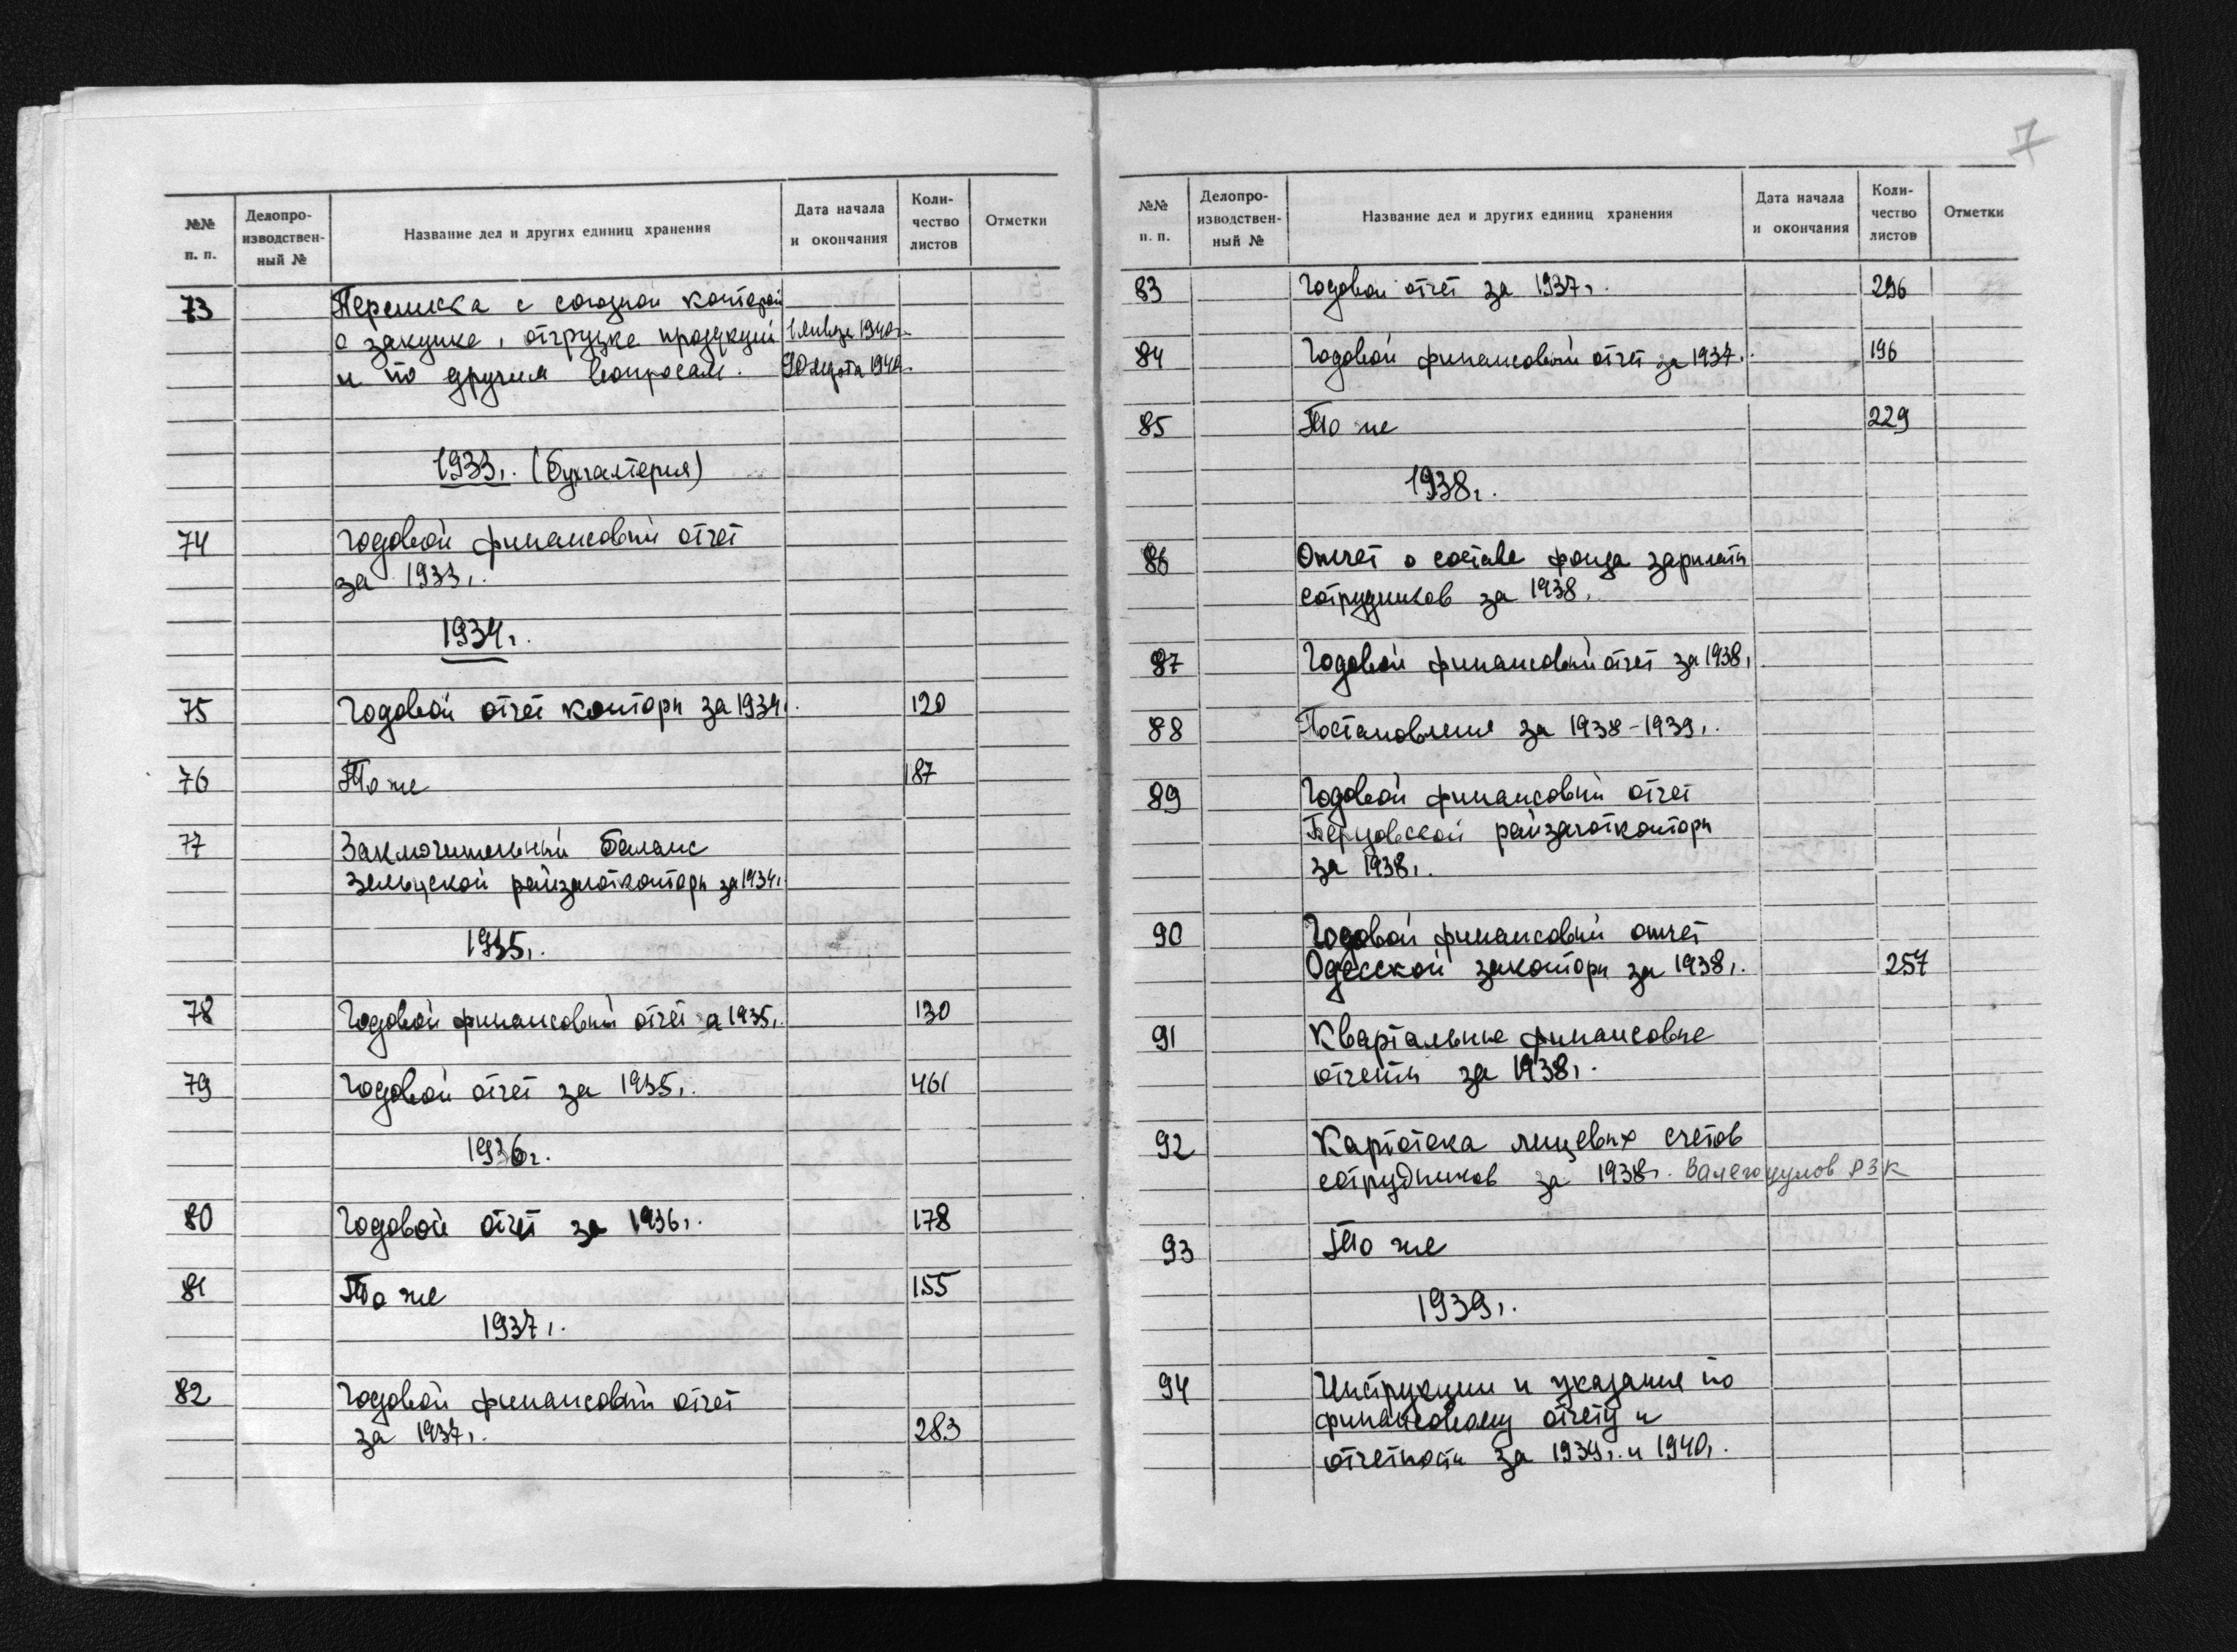 7
№№ п. п.
Делопро-
изводствен-
ный №
Название дел и других единиц хранения
Дата начала
и окончания
Коли-
чество
листов
Отметки
73 Переписка с союзной конторой
о закупке, отгрузке продукции 1 января 1940г.
и по другим вопросам. августа 1940.
1933г. (Бухгалтерия)
74 Годовой финансовый отчет
за 1933г.
1934г.
75 Годовой отчет конторы за 1934г. 120
76 То же 187
77 Заключительный баланс
Зельцской райзаготконторы за 1934г.
1935г.
78 Годовой финансовый отчет за 1935г. 130
79 Годовой отчет за 1935г. 461
1936г.
80 Годовой отчет за 1936г. 178
81 То же 155
1937г.
82 Годовой финансовый отчет
за 1937г. 283
№№ п. п.
Делопро-
изводствен-
ный №
Название дел и других единиц хранения
Дата начала
и окончания
Коли-
чество
листов
Отметки
83 Годовой отчет за 1937г. 296
84 Годовой финансовый отчет за 1937г. 196
85 То же 229
1938г.
86 Отчет о составе фонда зарплаты
сотрудников за 1938г.
87 Годовой финансовый отчет за 1938г.
88 Постановления за 1938-1939г.
89 Годовой финансовый отчет
райзаготконторы
за 1938г.
90 Годовой финансовый отчет
Одесской законторы за 1938г. 257
91 Квартальные финансовые
отчеты за 1938г.
92 Картотека лицевых счетов
сотрудников за 1938г. Валегоцулов РЗК
93 То же
1939г.
94 Инструкции и указания по
финансовому отчету и
отчетности за 1939г. и 1940г.